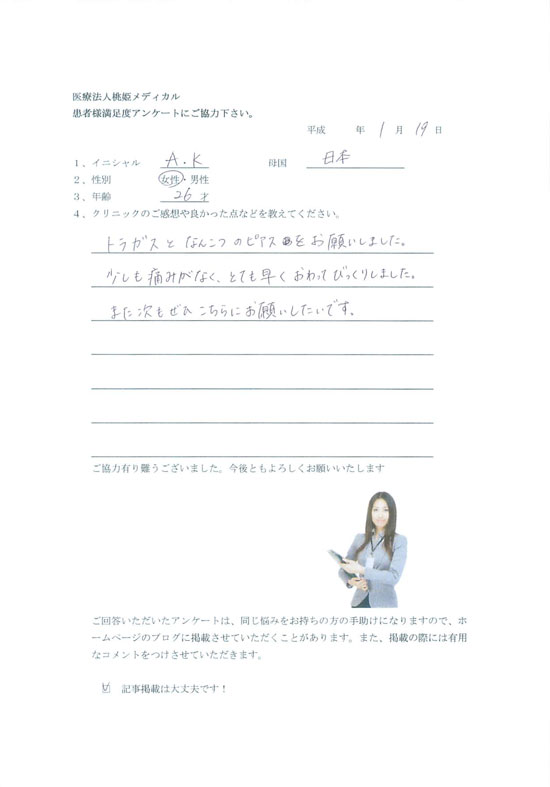 医療法人桃姫メディカル
患者様満足度アンケートにご協力下さい。
平成 年 1 月 19 日
1、イニシャル A.K 母国 日本
2、性別 女性・男性
3、年齢 26才
4、クリニックのご感想や良かった点などを教えてください。
トラガスとなんこつのピアスをお願いしました。
少しも痛みがなく、とても早くおわってびっくりしました。
また次もぜひこちらにお願いしたいです。
ご協力有り難うございました。今後ともよろしくお願いいたします
ご回答いただいたアンケートは、同じ悩みをお持ちの方の手助けになりますので、ホ
ームページのブログに掲載させていただくことがあります。また、掲載の際には有用
なコメントをつけさせていただきます。
☑ 記事掲載は大丈夫です!